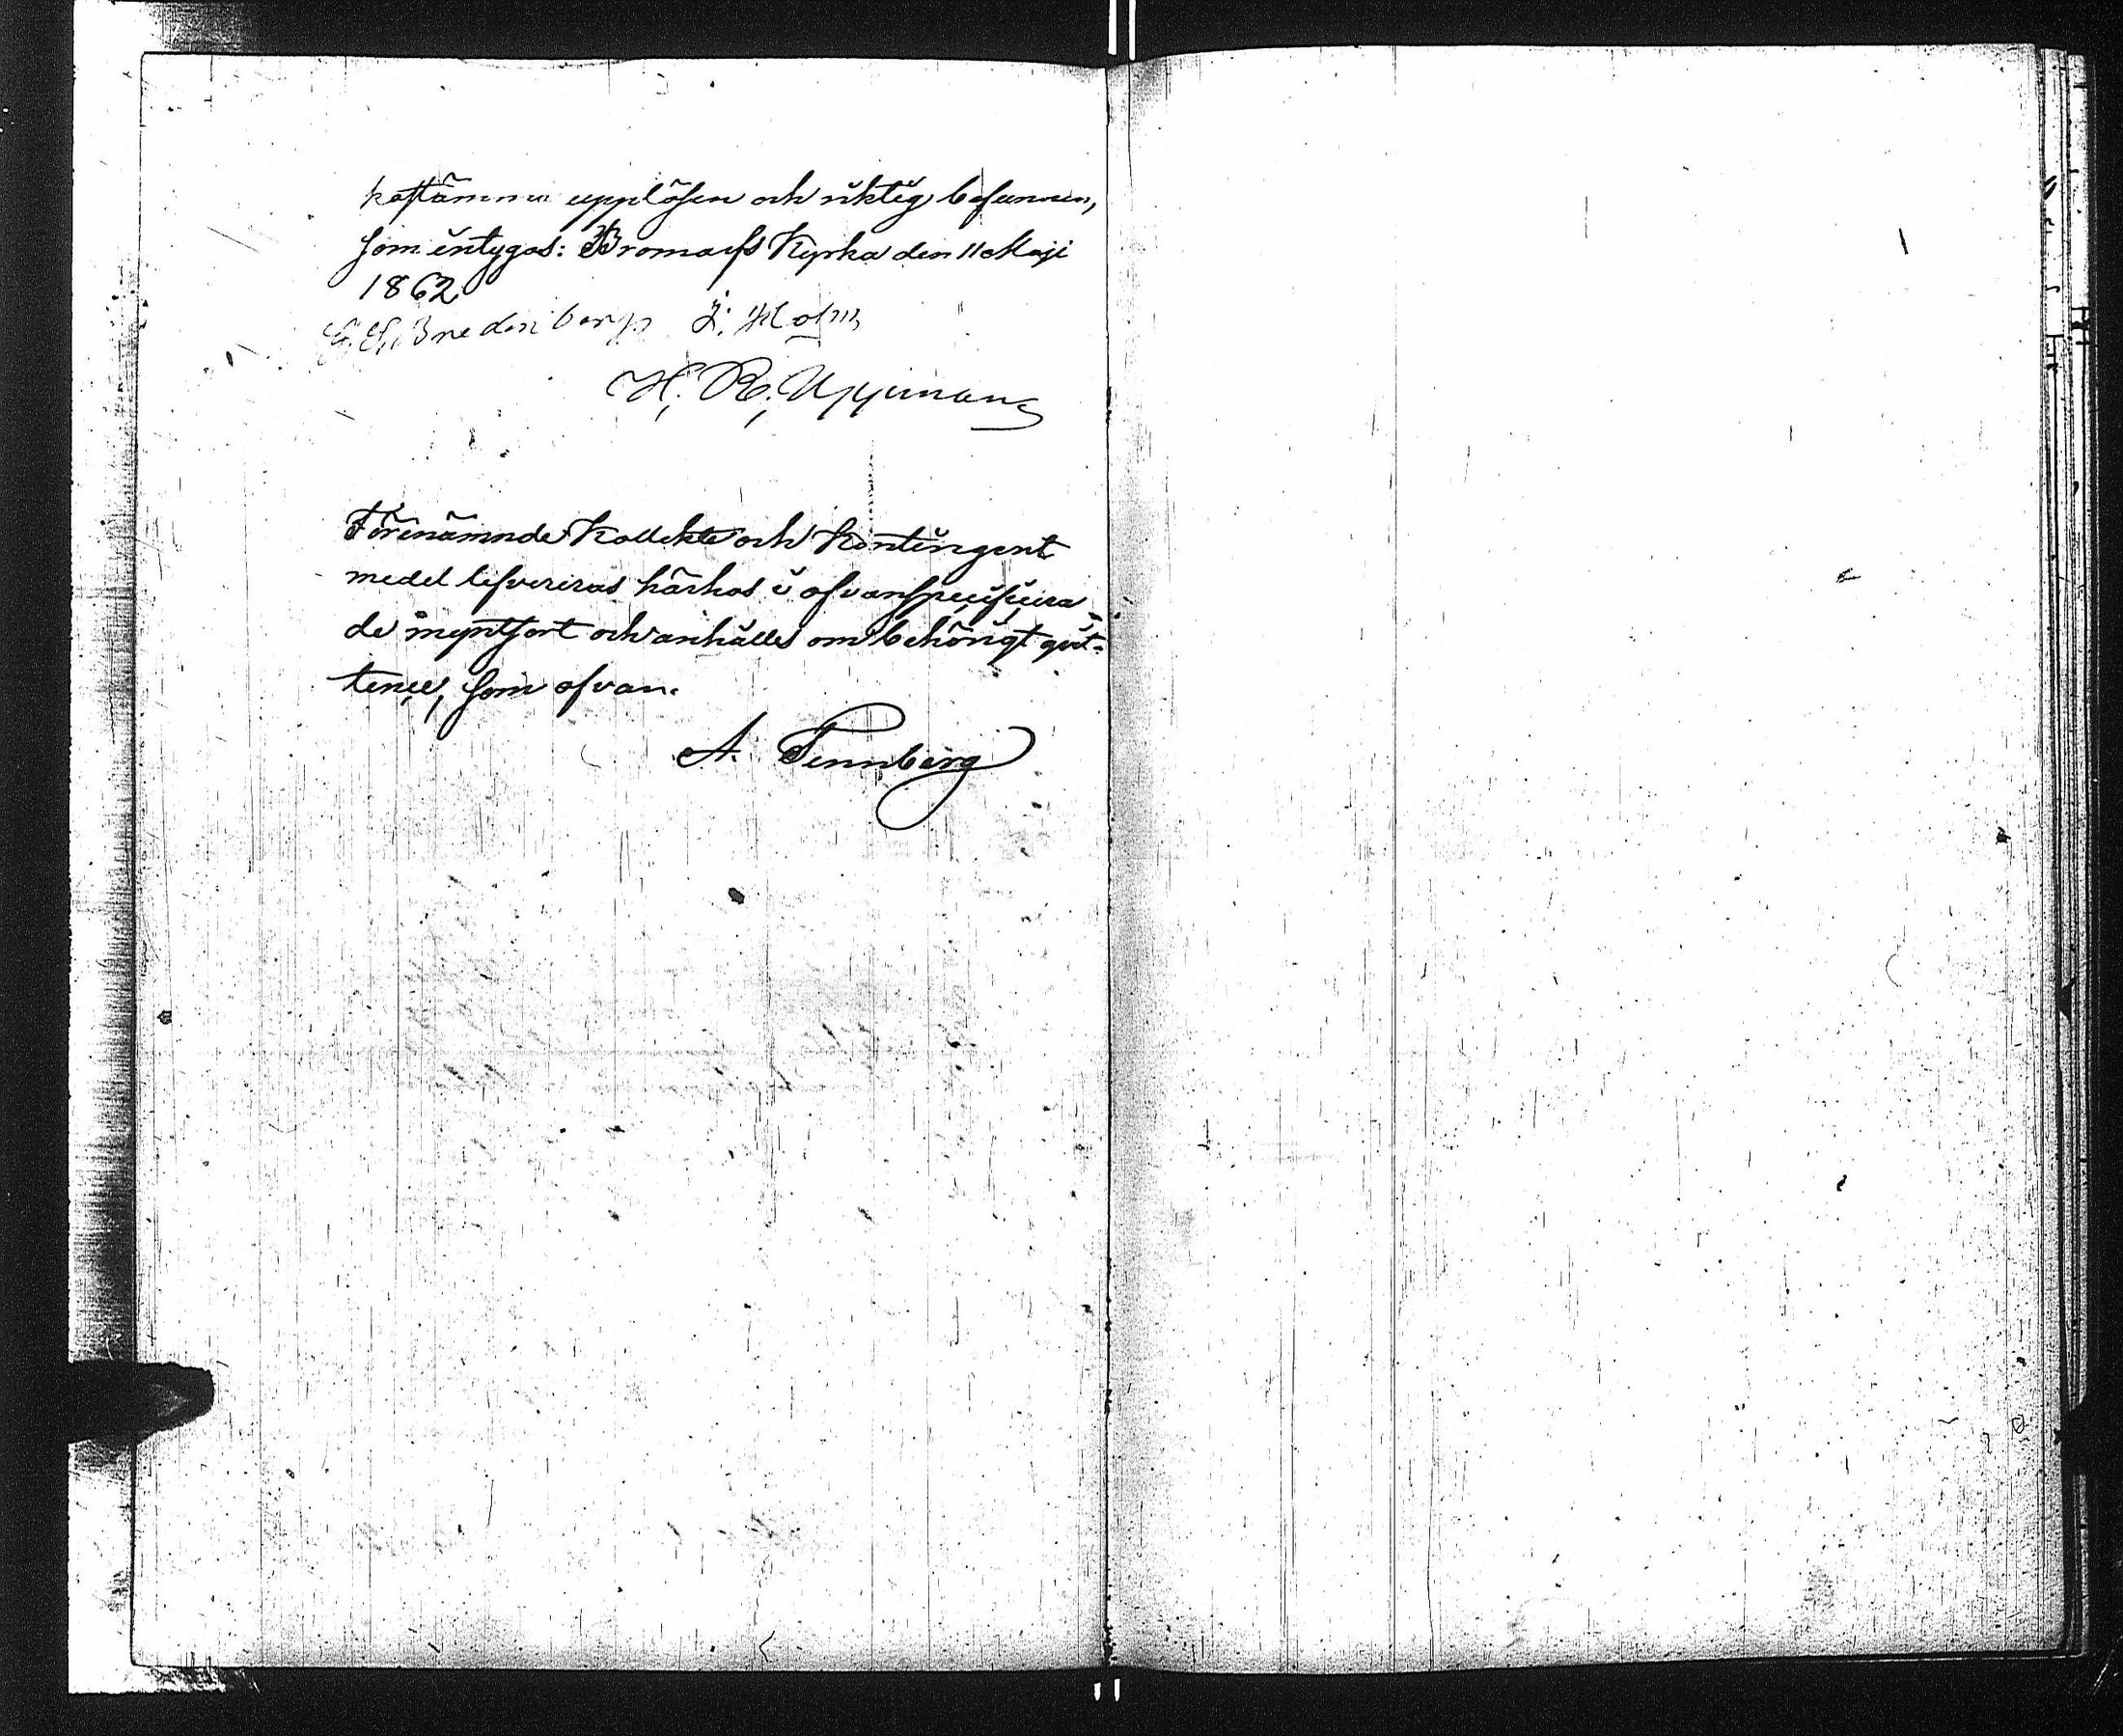 kostämma uppläsen och riktig befunnen,
som intygas: Bromarfs Kyrka den 11 Maji
1862
Bredenberg J. Holm
H. R. Uppman
Förenämnde Kollekte och Kontingent
medel lefvereras härhos i ofvanspecificera-
de myntsort och anhålles om behörigt qvit-
tence, som ofvan.
A. Tennberg